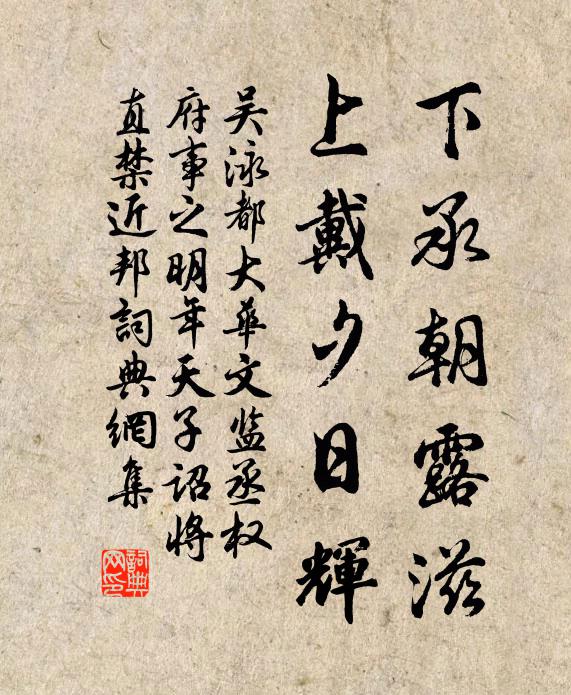 下承朝露滋
上戴夕日輝
吴泳都大華文监丞权
府事之明年天子詔将
直禁近邦詞典網集
詞典网印